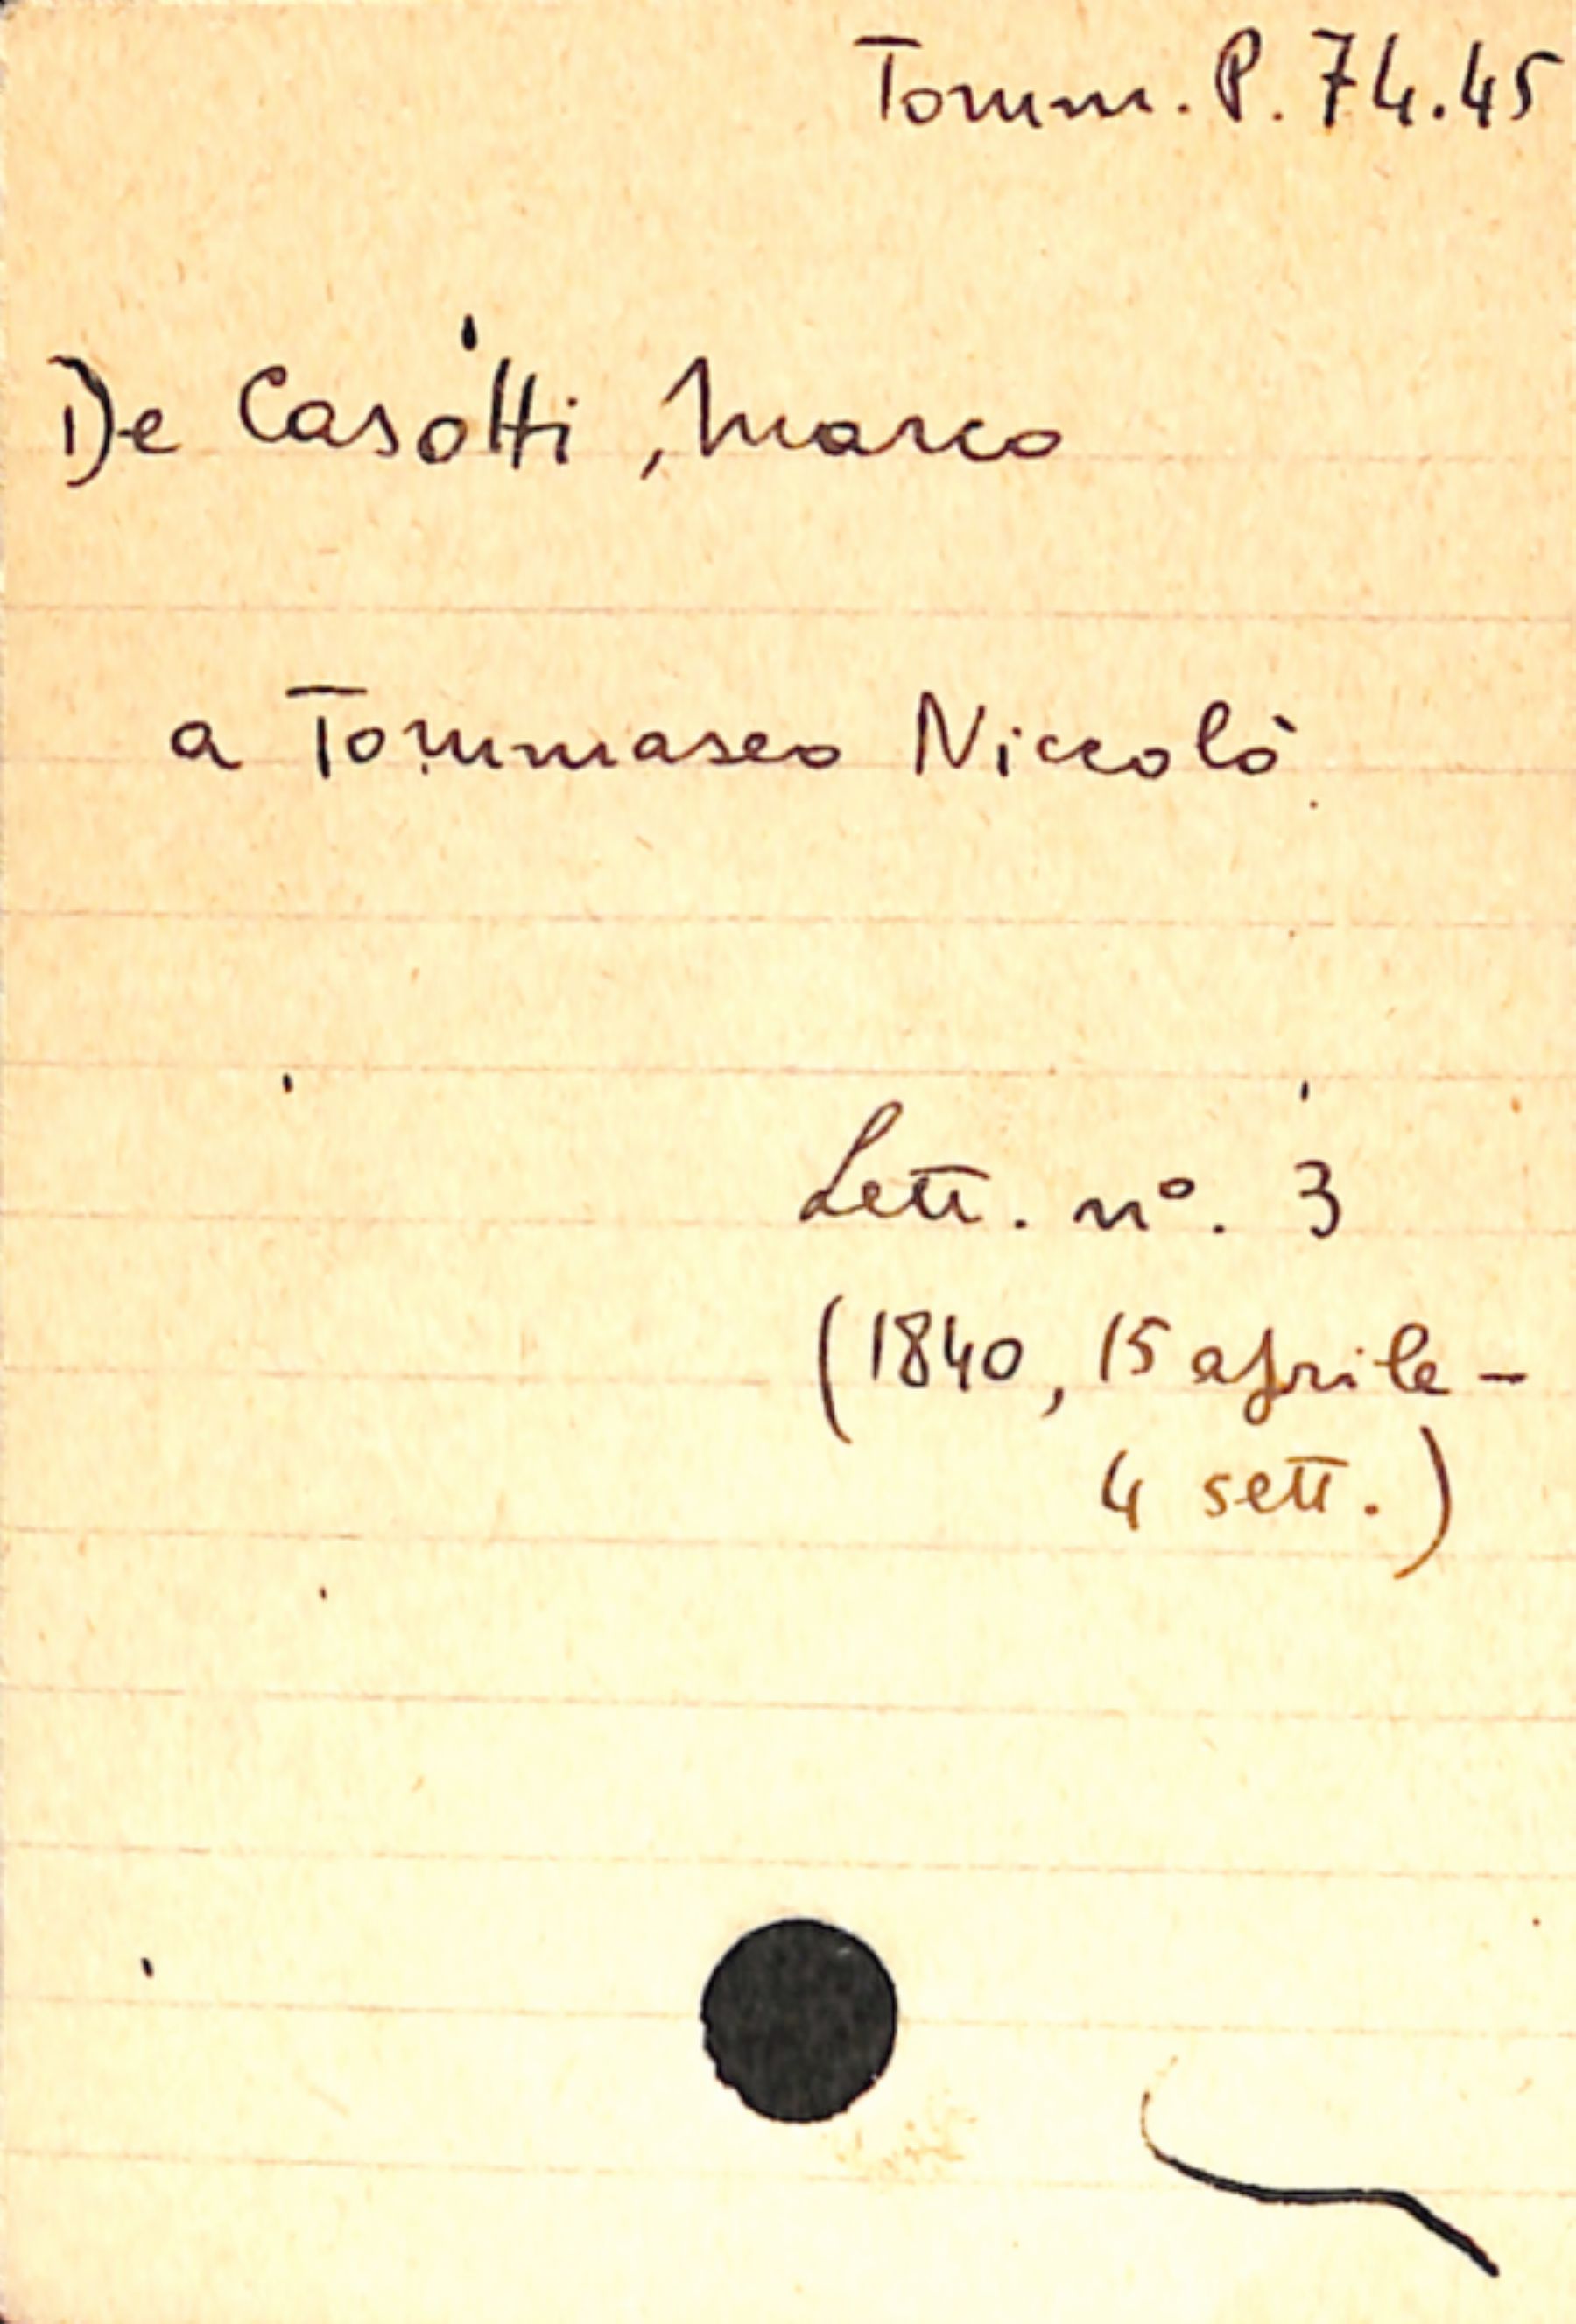 Tomm. P. 74.45
De Casotti, Marco
a Tommaseo Niccolò
Lett. nº. 3
(1840, 15 aprile -
4 sett.)